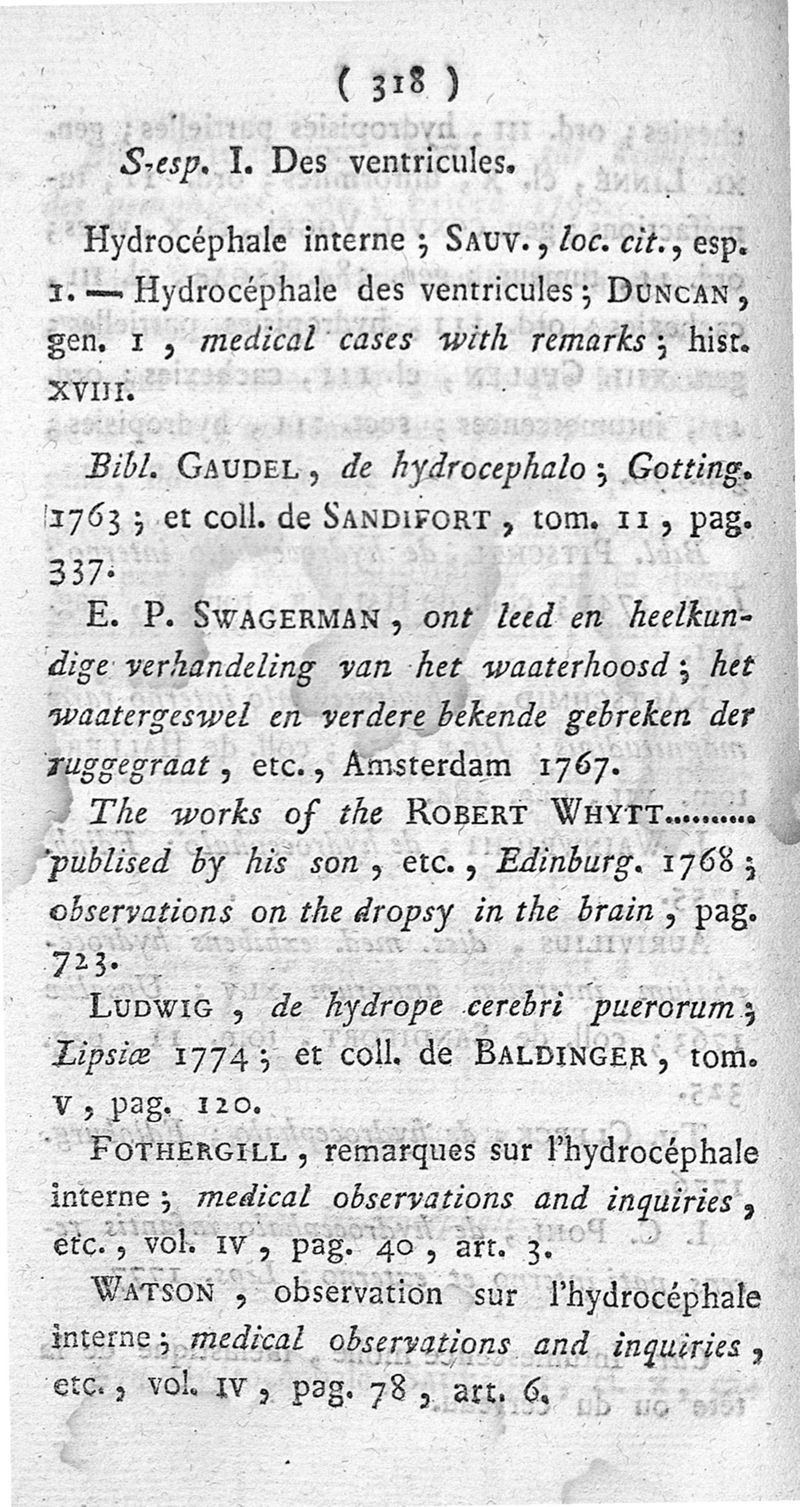 ( 318 )
S-esp. I. Des ventricules.
Hydrocéphale interne ; SAUV., loc. cit., esp.
1. — Hydrocéphale des ventricules ; DUNCAN,
gen. 1 , medical cases with remarks ; hist.
XVIII.
Bibl. GAUDEL , de hydrocephalo ; Gotting.
1763 ; et coll. de SANDIFORT , tom. II , pag.
337.
E. P. SWAGERMAN , ont leed en heelkun-
dige verhandeling van het waaterhoosd ; het
waatergeswel en verdere bekende gebreken der
ruggegraat , etc., Amsterdam 1767.
The works of the ROBERT WHYTT..........
publised by his son , etc. , Edinburg. 1768 ;
observations on the dropsy in the brain , pag.
723.
LUDWIG , de hydrope cerebri puerorum ;
Lipsiæ 1774 ; et coll. de BALDINGER , tom.
V , pag. 120.
FOTHERGILL , remarques sur l'hydrocéphale
interne ; medical observations and inquiries ,
etc. , vol. IV , pag. 40 , art. 3.
WATSON , observation sur l'hydrocéphale
interne ; medical observations and inquiries ,
etc. , vol. IV , pag. 78 , art. 6.